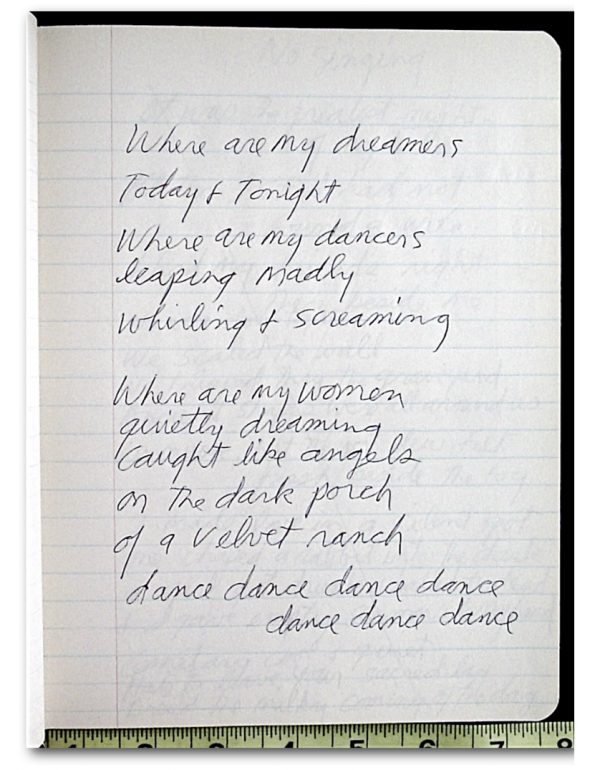 Where are my dreamers
Today & Tonight
Where are my dancers
leaping madly
whirling & screaming
Where are my women
quietly dreaming
caught like angels
on the dark porch
of a velvet ranch
dance dance dance dance
dance dance dance
1 2 3 4 5 6 7 8